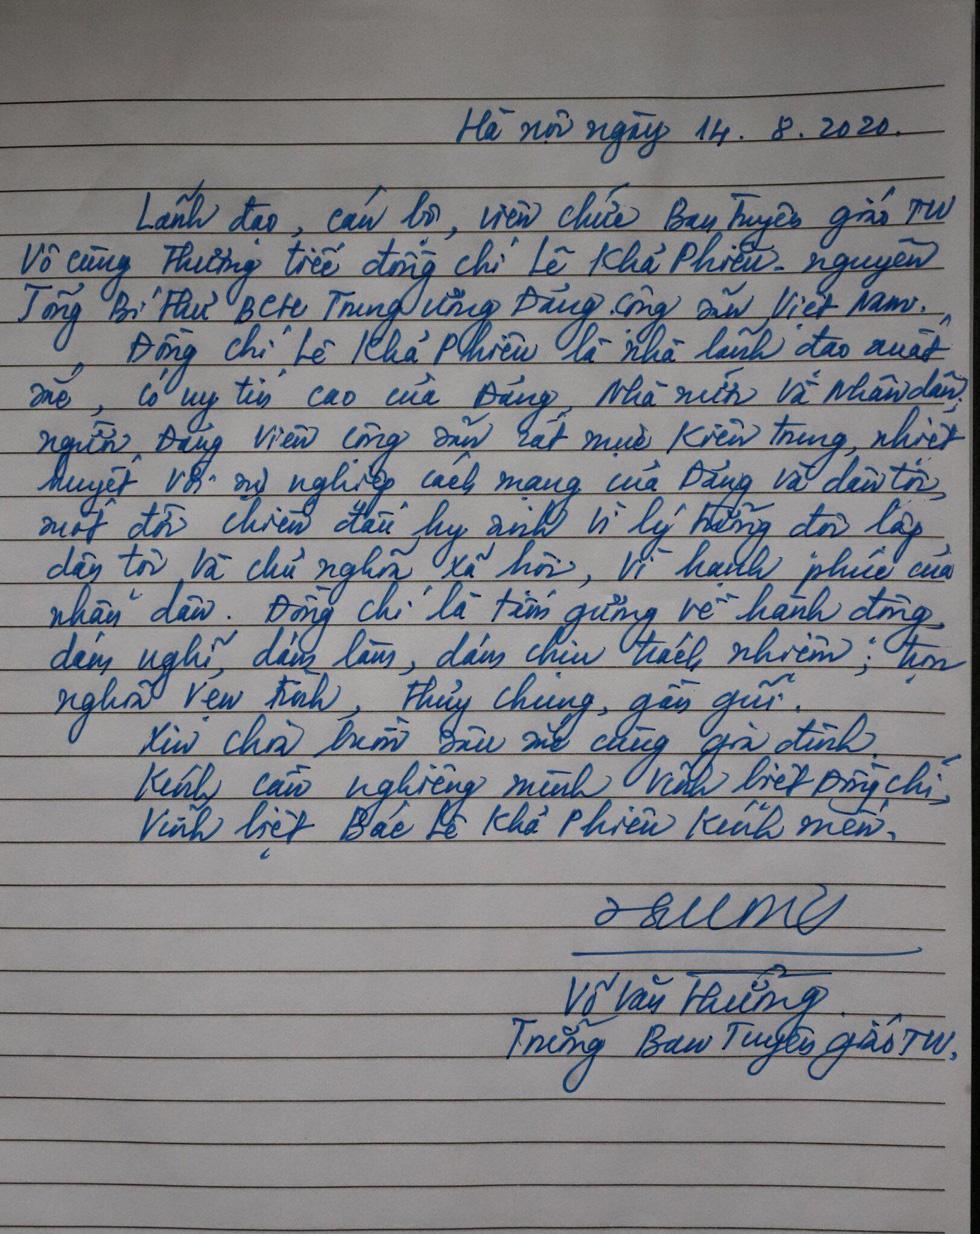 Hà nội ngày 14. 8. 2020.
Lãnh đạo, cán bộ, viên chức Ban Tuyên giáo TW
Vô cùng thương tiếc đồng chí Lê Khả Phiêu - nguyên
Tổng Bí thư BCH Trung ương Đảng cộng sản Việt Nam.
Đồng chí Lê Khả Phiêu là nhà lãnh đạo xuất
sắc, có uy tín cao của Đảng, Nhà nước và Nhân dân,
người Đảng viên cộng sản rất mực kiên trung, nhiệt
huyết với sự nghiệp cách mạng của Đảng và dân tộc,
một đời chiến đấu hy sinh vì lý tưởng độc lập
dân tộc và chủ nghĩa xã hội, vì hạnh phúc của
nhân dân. Đồng chí là tấm gương về hành động,
dám nghĩ, dám làm, dám chịu trách nhiệm; trọn
nghĩa vẹn tình, thủy chung, gần gũi.
Xin chia buồn sâu sắc cùng gia đình.
Kính cẩn nghiêng mình vĩnh biệt Đồng chí,
Vĩnh biệt Bác Lê Khả Phiêu kính mến.
Võ Văn Thưởng
Trưởng Ban Tuyên giáo TW.